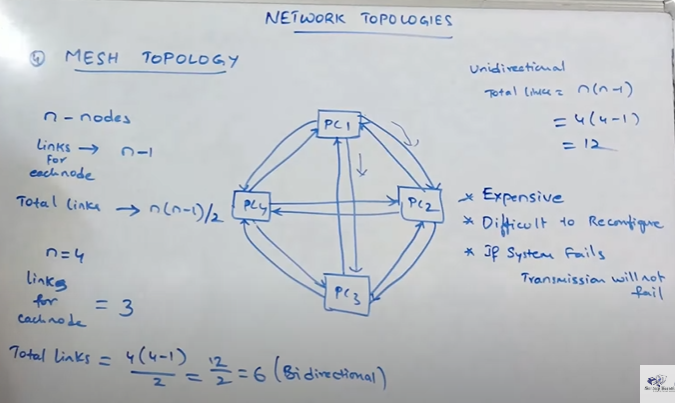 NETWORK TOPOLOGIES
④ MESH TOPOLOGY
n - nodes
Links → n-1
for
each node
Total links → n(n-1)/2
n=4
links
for
each node = 3
Total links = 4(4-1)/2 = 12/2 = 6 (Bidirectional)
PC1
PC4
PC2
PC3
Unidirectional
Total links = n(n-1)
= 4(4-1)
= 12
* Expensive
* Difficult to Reconfigure
* If System Fails
Transmission will not
fail